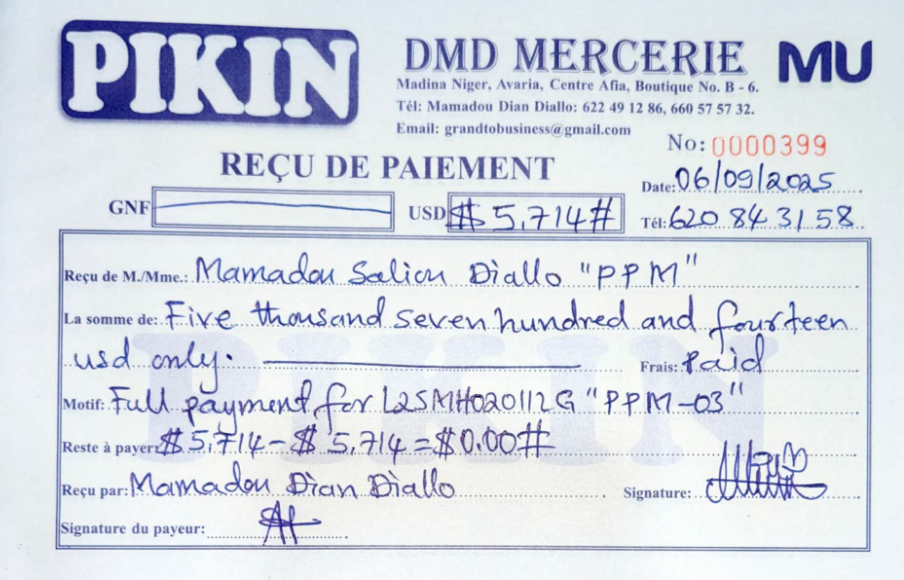 PIKIN
DMD MERCERIE MU
Madina Niger, Avaria, Centre Afia, Boutique No. B - 6.
Tél: Mamadou Dian Diallo: 622 49 12 86, 660 57 57 32.
Email: grandtobusiness@gmail.com
No: 0000399
REÇU DE PAIEMENT
Date: 06/09/2025
GNF USD $ 5,714#
Tél: 620 84 31 58
Reçu de M./Mme.: Mamadou Saliou Diallo "PPM"
La somme de: Five thousand seven hundred and fourteen
usd only. Frais: Paid
Motif: Full payment for L2SMH020112G "PPM-03"
Reste à payer: $5,714 - $5,714 = $0.00#
Reçu par: Mamadou Dian Diallo Signature:
Signature du payeur:
PIKIN